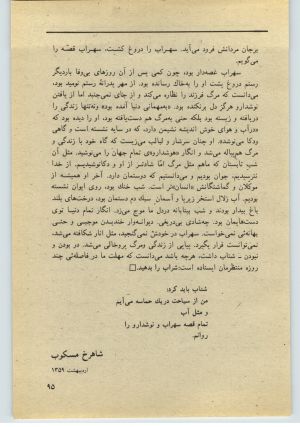 برجان مردانش فرود می‌آید. سهراب را دروغ کشت، سهراب قصّه را
می‌گویم.
سهراب غصه‌دار بود، چون کمی پس از آن روزهای بی‌وفا باردیگر
رستم دروغ پشت او را به‌خاك رسانده بود. از مهر پدرانهٔ رستم نومید بود،
می‌دانست که مرگ فرزند را نظاره می‌کند و از جای نمی‌جنبد اما از یافتن
نوشدارو هرگز دل برنکنده بود. «به‌مهمانی دنیا آمده بود» و‌نه‌تنها زندگی را
دریافته و زیسته بود بلکه حتی به‌مرگ هم دست‌یافته بود. او را دیده بود که
«درآب و هوای خوش اندیشه نشیمن دارد، که در سایه نشسته است و گاهی
ودکا می‌نوشد». و چنان سرشار و لبالب می‌زیست که گاه خود با زندگی و
مرگ هم‌پیاله می‌شد و انگار «هوشداروی» تمام جهان را می‌نوشید. مثل آن
شب تابستان که ماهم مثل مرگ اما شادتر از او و دکا‌نوشیدیم. از خدا
نترسیدیم، جوان بودیم و می‌دانستیم که دوستمان دارد. آخر او همیشه از
موکلان و گماشتگانش «انسان»تر است. شب خنك بود، روی ایوان نشسته
بودیم. آب زلال استخر زیرپا و آسمان سبك دم دستمان بود، درخت‌های بلند
باغ بیدار بودند و شب بیتابانه دردل ما موج می‌زد. انگار تمام دنیا توی
دست‌هایمان بود. چه‌شادی بی‌دریغی. دیوانه‌وار خندیدن موجبی و حتی
بهانه‌ئی نمی‌خواست. سهراب در خودش نمی‌گنجید، مثل انار شکافته می‌شد،
نمی‌توانست قرار بگیرد. پیاپی از زندگی ومرگ بروخالی می‌شد. در بودن و
نبودن ـ شتاب داشت، هرچه باشد می‌دانست که مهلت ما در فاصله‌ئی چند
روزه منتظرمان ایستاده است: شراب را بدهید. □
شتاب باید کرد:
من از سیاحت دریك حماسه می‌آیم
و مثل آب
تمام قصه سهراب و نوشدارو را
روانم.
شاهرخ مسکوب
اردیبهشت ۱۳۵۹
۹۵